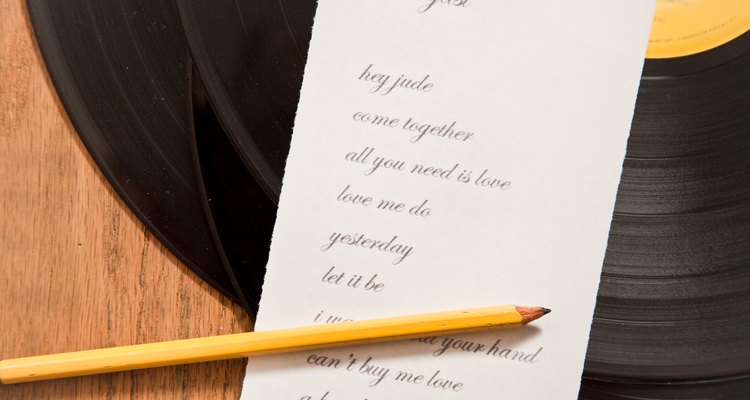 hey jude
come together
all you need is love
love me do
yesterday
let it be
i your hand
can't buy me love